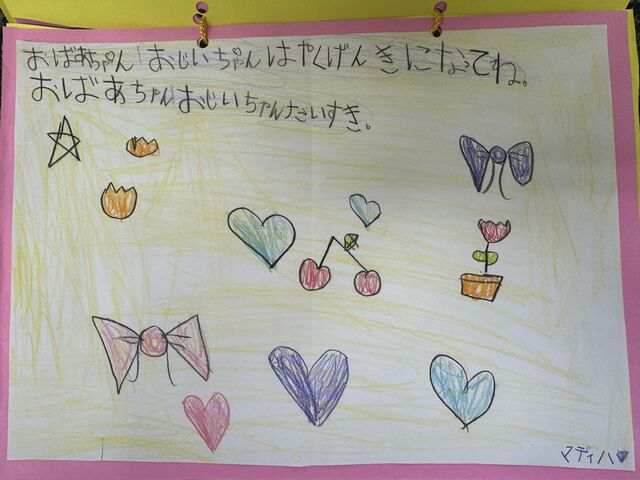 おばあちゃん おじいちゃん はやくげんきになってね。
おばあちゃん おじいちゃんたいすき。
マディハ